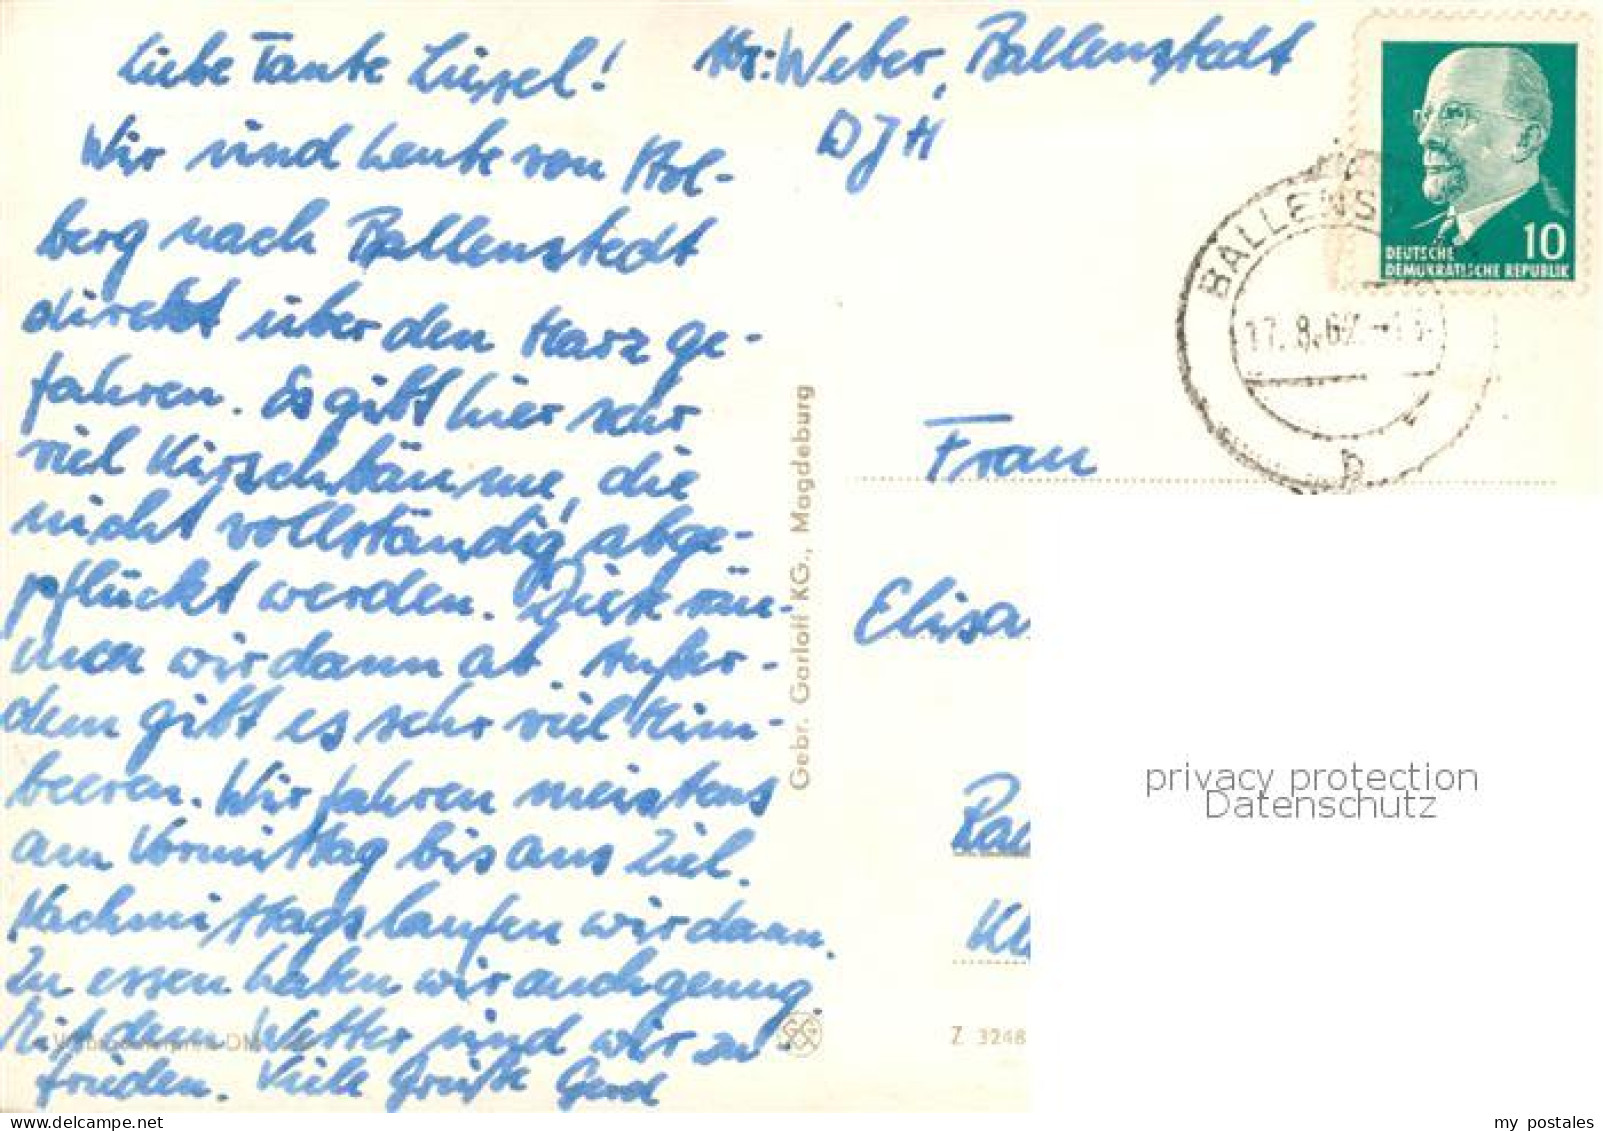 Liebe Tante Lüssel!
Wir sind heute von Stol-
berg nach Ballenstedt
direkt über den Harz ge-
fahren. Es gibt hier sehr
viel Kirschbäume, die
nicht vollständig abge-
pflückt werden. Diese räu-
men wir dann ab. Außer-
dem gibt es sehr viel Him-
beeren. Wir fahren meistens
am Vormittag bis ans Ziel.
Nachmittags laufen wir dann.
Zu essen haben wir auch genug.
Mit dem Wetter sind wir zu-
frieden. Viele Grüße Gerd
Abs: Weber, Ballenstedt
DJH
DEUTSCHE
DEMOKRATISCHE REPUBLIK
10
BALLENS
17. 8. 62
b
Frau
Elisa
Gebr. Garloff KG., Magdeburg
Z 3248
privacy protection
Datenschutz
my postales